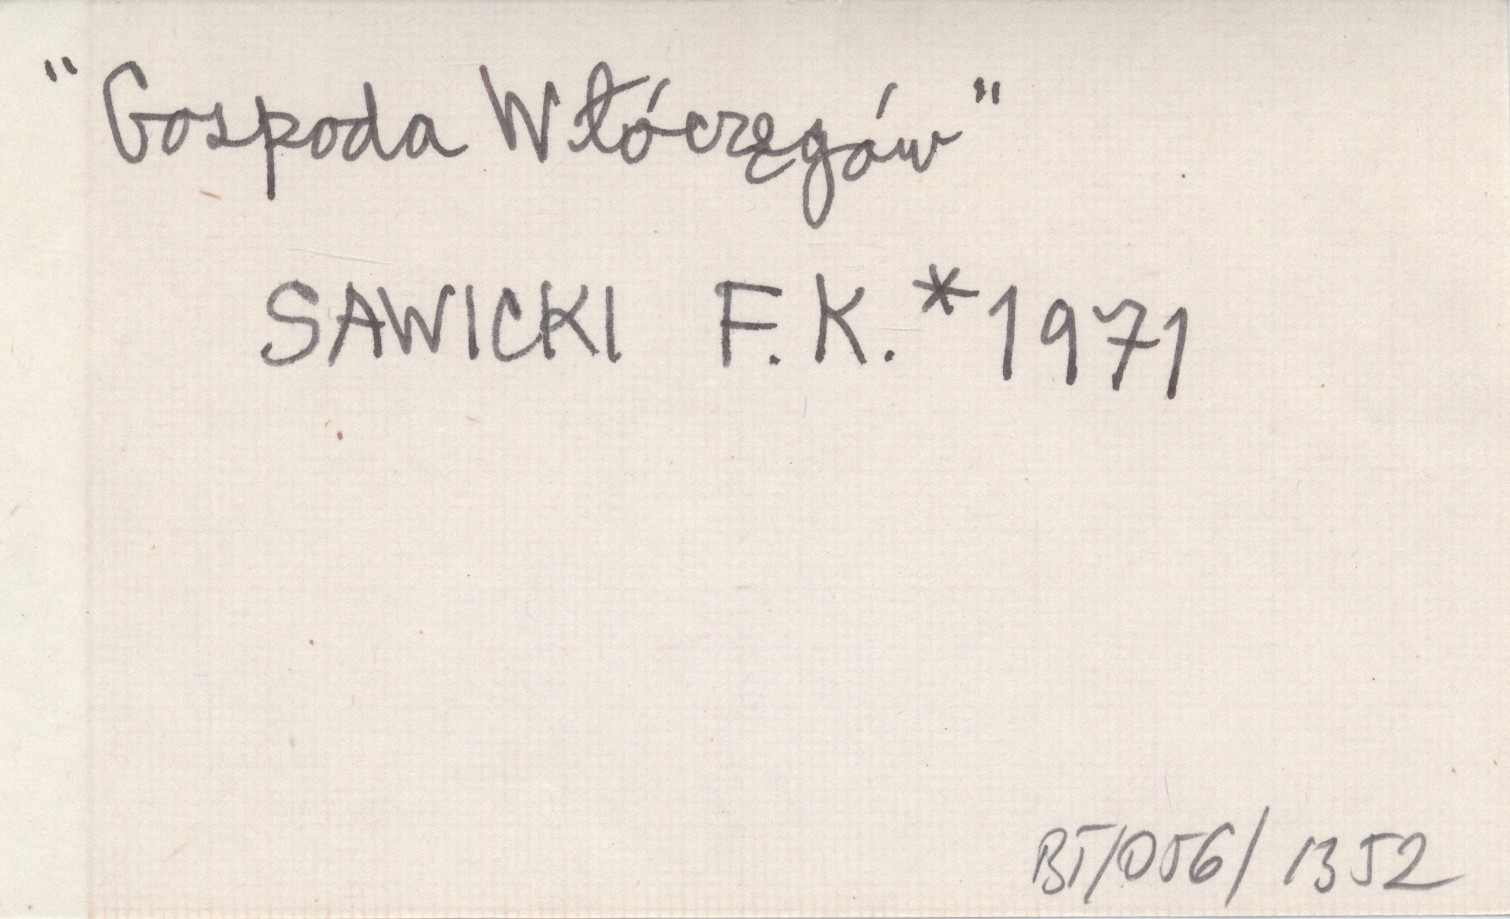 "Gospoda Włóczęgów"
SAWICKI F.K. *1971
BT/056/1352